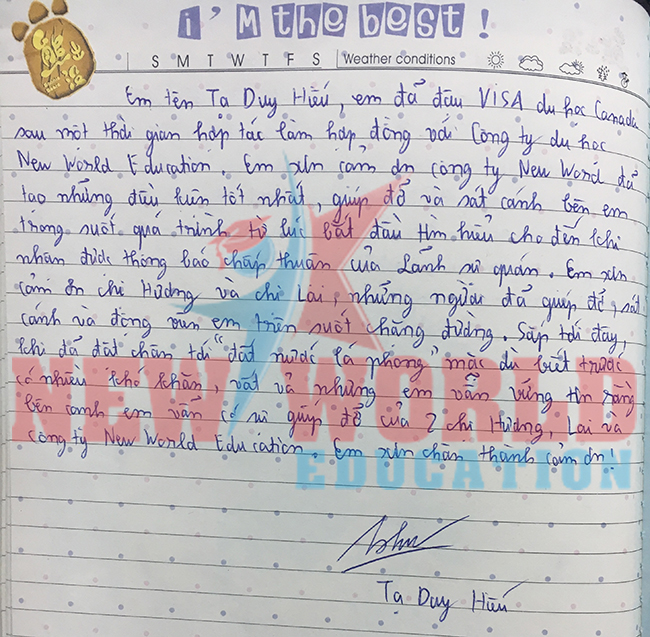 i'M the best!
S M T W T F S Weather conditions
Em tên Tạ Duy Hiếu, em đã đậu VISA du học Canada
sau một thời gian hợp tác làm hợp đồng với Công ty du học
New World Education. Em xin cảm ơn công ty New World đã
tạo những điều kiện tốt nhất, giúp đỡ và sát cánh bên em
trong suốt quá trình từ lúc bắt đầu tìm hiểu cho đến khi
nhận được thông báo chấp thuận của Lãnh sự quán. Em xin
cảm ơn chị Hường và chị Lài, những người đã giúp đỡ, sát
cánh và động viên em trên suốt chặng đường. Sắp tới đây,
khi đã đặt chân tới "đất nước lá phong" mặc dù biết trước
có nhiều khó khăn, vất vả nhưng em vẫn vững tin rằng
bên cạnh em vẫn có sự giúp đỡ của 2 chị Hường, Lài và
công ty New World Education. Em xin chân thành cảm ơn!
NEW WORLD
EDUCATION
Tạ Duy Hiếu